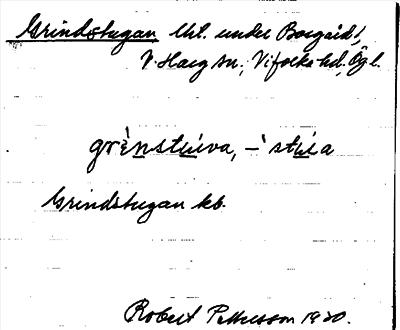 Grindstugan lht. under Borgård,
V. Harg sn., Vifolka hd., Ögl.
grènstúva, –̀ stúa
Grindstugan kb.
Robert Pettersson 1920.